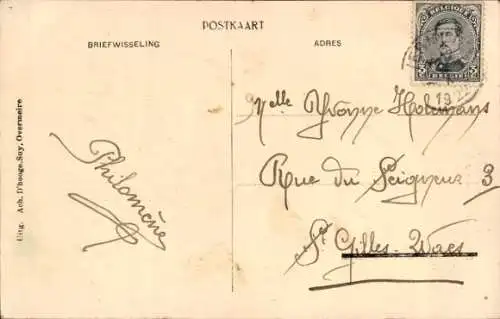 POSTKAART
BRIEFWISSELING
ADRES
BELGIQUE
BELGIË
19
Uitg. Ach. D'hooge-Soy, Overmeire
Philomène
Melle Yvonne Holemans
Rue du Seigneur 3
St Gilles-Waes